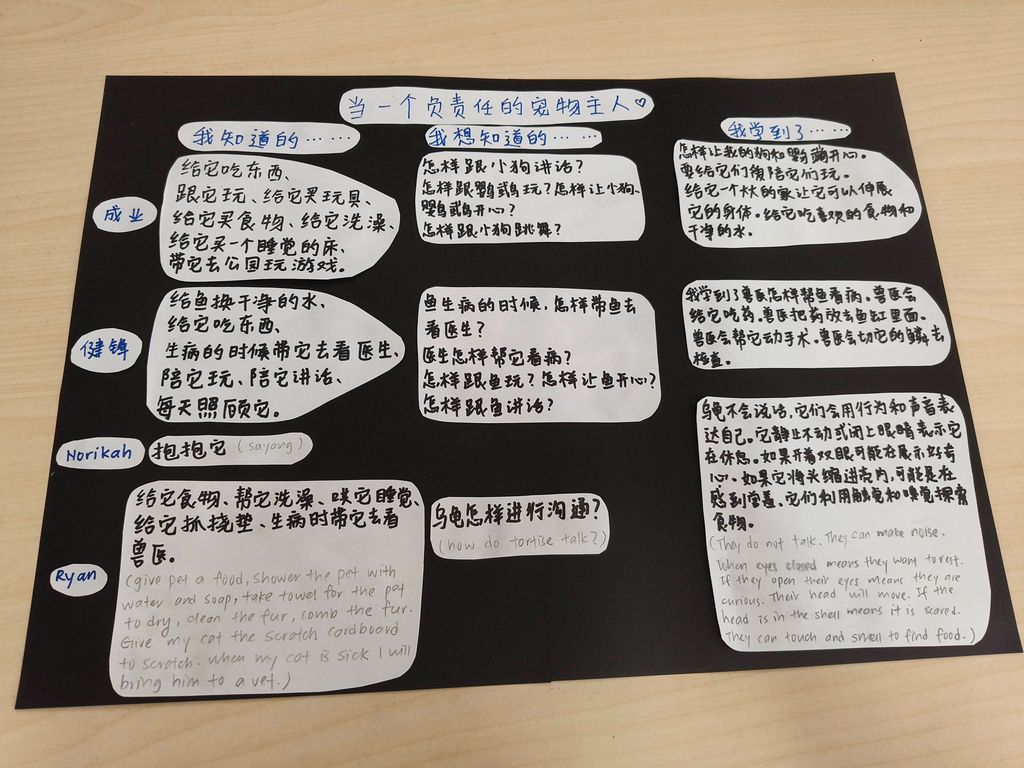 当一个负责任的宠物主人♡
我知道的……
我想知道的……
我学到了……
成业
给它吃东西、
跟它玩、给它买玩具、
给它买食物、给它洗澡、
给它买一个睡觉的床、
带它去公园玩游戏。
怎样跟小狗讲话?
怎样跟鹦鹉玩?怎样让小狗、
鹦鹉开心?
怎样跟小狗跳舞?
怎样让我的狗和鹦鹉开心。
要给它们陪它们玩。
给它一个大的家让它可以伸展
它的身体。给它吃喜欢的食物和
干净的水。
健锋
给鱼换干净的水、
给它吃东西、
生病的时候带它去看医生、
陪它玩、陪它讲话、
每天照顾它。
鱼生病的时候,怎样带鱼去
看医生?
医生怎样帮它看病?
怎样跟鱼玩?怎样让鱼开心?
怎样跟鱼讲话?
我学到了兽医怎样帮鱼看病。兽医会
给它吃药。兽医把药放去鱼缸里面。
兽医会帮它动手术。兽医会切它的鳞去
检查。
Norikah
抱抱它 (sayang)
Ryan
给它食物、帮它洗澡、哄它睡觉、
给它抓挠垫、生病时带它去看
兽医。
(give pet a food, shower the pet with
water and soap, take towel for the pet
to dry, clean the fur, comb the fur.
Give my cat the scratch cardboard
to scratch. when my cat is sick I will
bring him to a vet.)
乌龟怎样进行沟通?
(how do tortise talk?)
乌龟不会说话,它们会用行为和声音表
达自己。它静止不动或闭上眼睛表示它
在休息。如果开着双眼可能在展示好奇
心。如果它将头缩进壳内,可能是在
感到害羞。它们利用触觉和嗅觉探索
食物。
(They do not talk. They can make noise.
When eyes closed means they want to rest.
If they open their eyes means they are
curious. Their head will move. If the
head is in the shell means it is scared.
They can touch and smell to find food.)